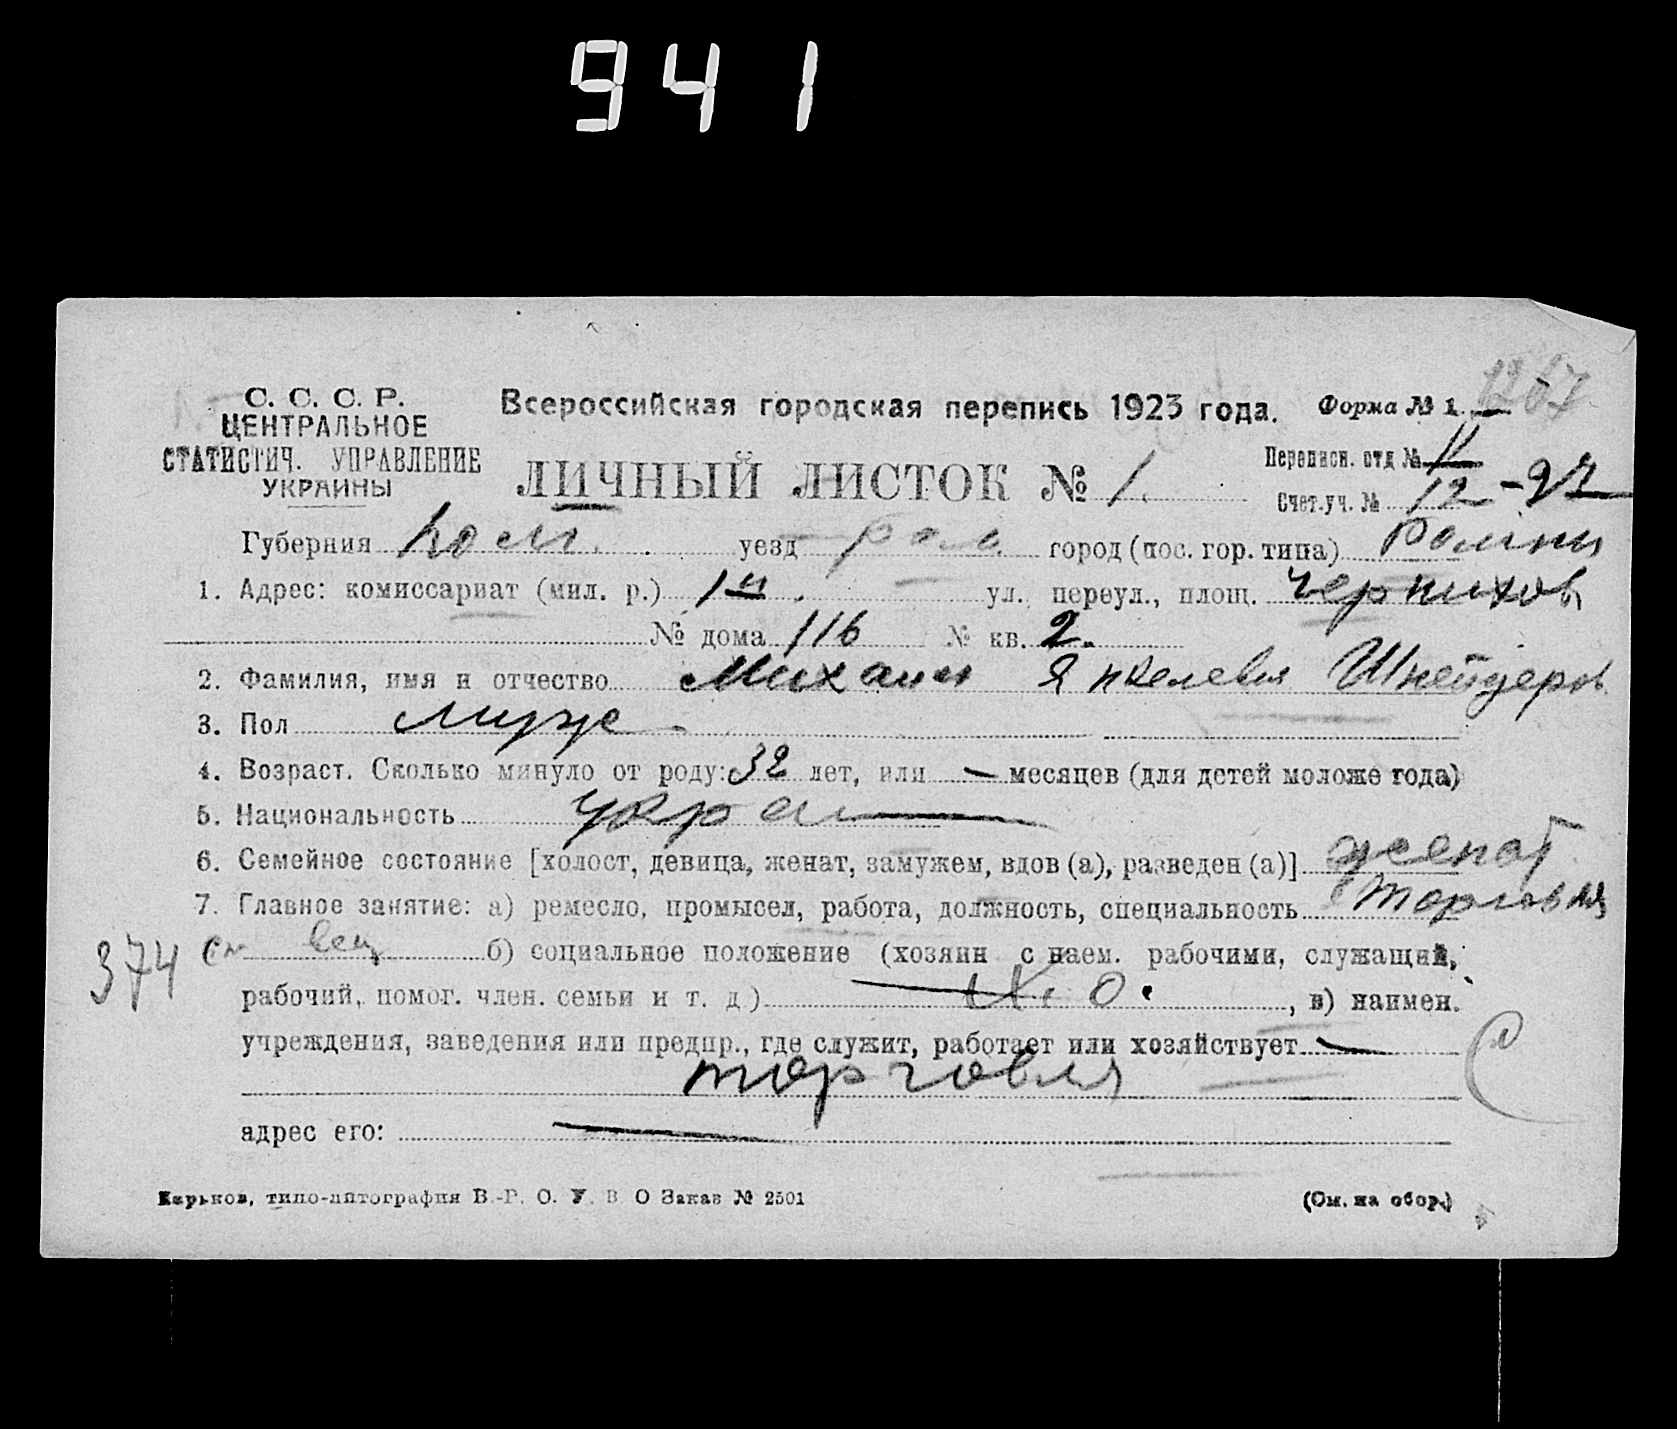 941
С. С. С. Р.
ЦЕНТРАЛЬНОЕ
СТАТИСТИЧ. УПРАВЛЕНИЕ
УКРАИНЫ
Всероссийская городская перепись 1923 года.
Форма № 1.
ЛИЧНЫЙ ЛИСТОК № 1.
Переписн. отд № 11
Счет. уч. № 12 - 97
Губерния Пол. уезд Ром. город (пос. гор. типа) Ромны
1. Адрес: комиссариат (мил. р.) 1й. ул., переул., площ. Чернихов
№ дома 116 № кв. 2.
2. Фамилия, имя и отчество Михаил Янкелевич Шнейдеров
3. Пол муж
4. Возраст. Сколько минуло от роду: 32 лет, или — месяцев (для детей моложе года)
5. Национальность
6. Семейное состояние [холост, девица, женат, замужем, вдов (а), разведен (а)] женат
7. Главное занятие: а) ремесло, промысел, работа, должность, специальность Торговля
374
б) социальное положение (хозяин с наем. рабочими, служащий,
рабочий, помог. член. семьи и т. д) Х. О. , в) наимен.
учреждения, заведения или предпр., где служит, работает или хозяйствует —
торговля
адрес его: —
Харьков, типо-литография В.-Р. С. У. В О Заказ № 2501
(См. на обор.)